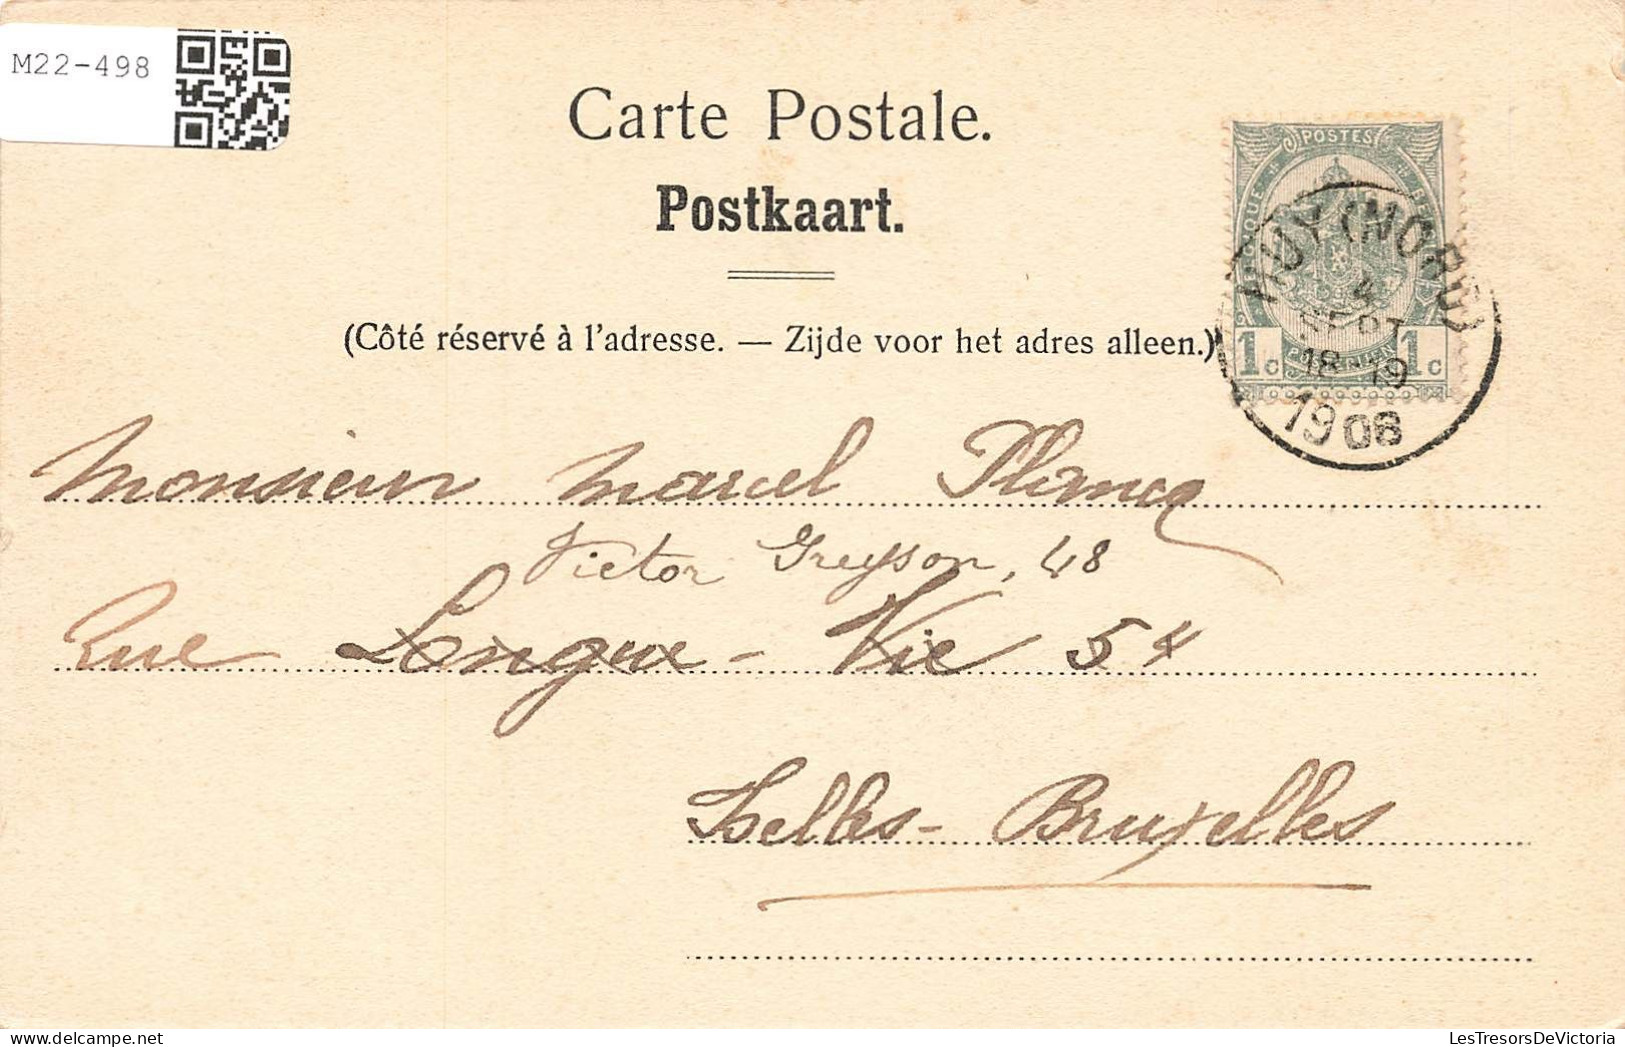 M22-498
Carte Postale.
Postkaart.
(Côté réservé à l'adresse. — Zijde voor het adres alleen.)
POSTES
BELGIQUE
1c 1c
HUY (NORD)
4
SEPT
18-19
1906
Monsieur Marcel
Victor Greyson, 48
Rue Longue-Vie 54
Ixelles-Bruxelles
LesTresorsDeVictoria